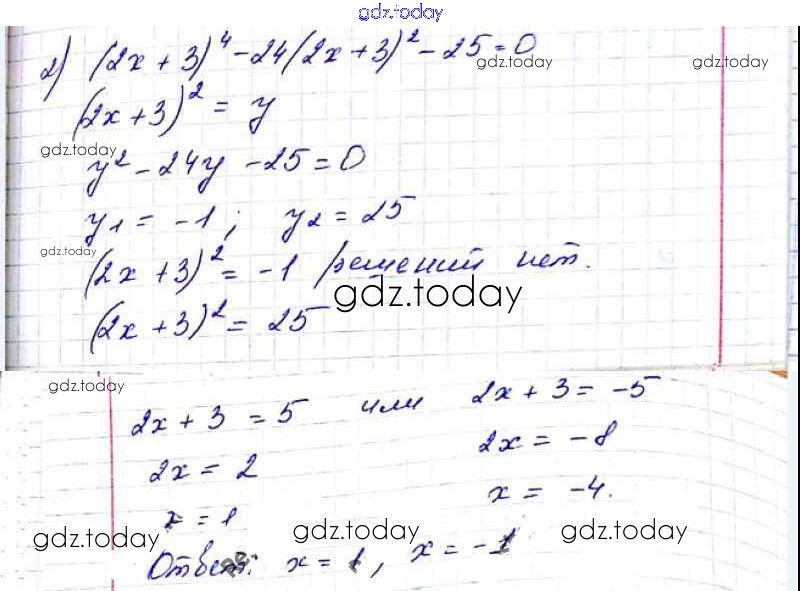 gdz.today
2) (2x + 3)⁴ - 24(2x + 3)² - 25 = 0
gdz.today gdz.today
(2x + 3)² = y
gdz.today
y² - 24y - 25 = 0
y₁ = -1 ; y₂ = 25
gdz.today
(2x + 3)² = -1 решений нет.
gdz.today
(2x + 3)² = 25
gdz.today
2x + 3 = 5 или 2x + 3 = -5
2x = 2 2x = -8
x = 1 x = -4.
gdz.today gdz.today gdz.today
Ответ: x = 1, x = -1